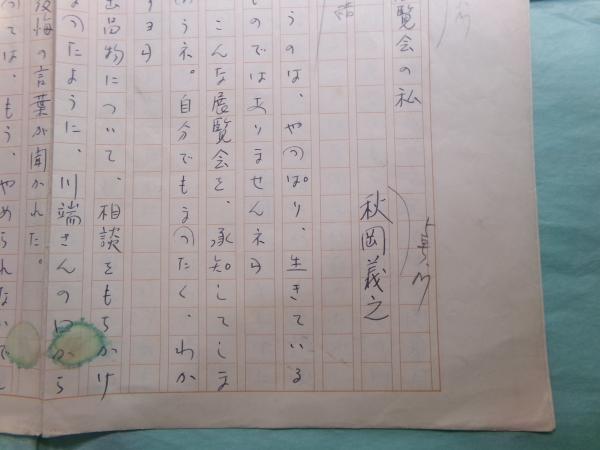 覧会の私
秋岡義之
うのは、やっぱり、生きている
ものではありませんネ」
こんな展覧会を、承知してしま
うネ。自分でもまったく、わか
するヨ」
出品物について、相談をもちかけ
なったように、川端さんの口から
後悔の言葉が聞かれた。
っては、もう、やめられないでし